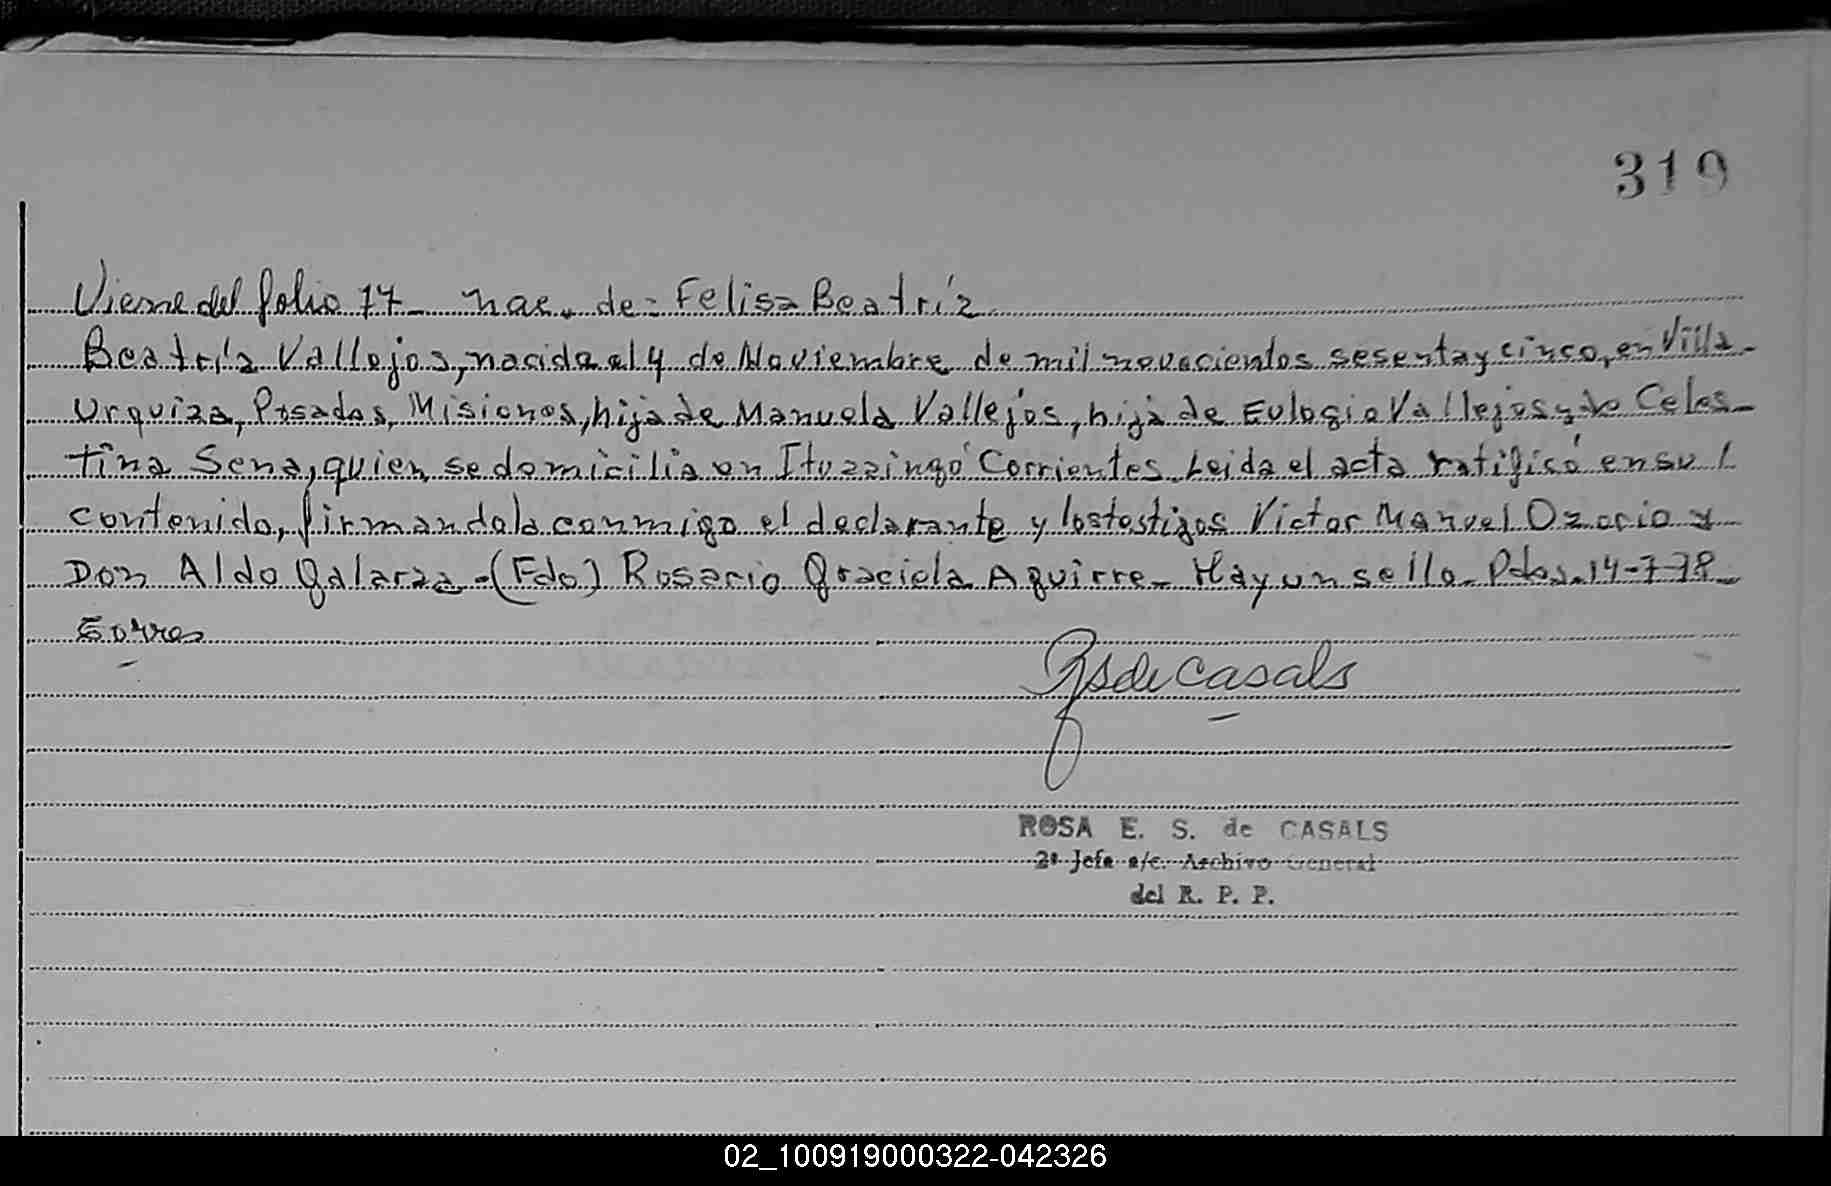 319
Viene del folio 17- nac. de - Felisa Beatríz
Beatríz Vallejos, nacida el 4 de Noviembre de mil novecientos sesenta y cinco, en Villa
Urquiza, Posadas, Misiones, hija de Manuela Vallejos, hija de Eulogio Vallejos y de Celes-
tina Sena, quien se domicilia en Ituzzingó Corrientes. Leida el acta ratificó en su
contenido, firmandola conmigo el declarante y los testigos Victor Manuel Ozorio y
Don Aldo Galarza - (Fdo) Rosario Graciela Aguirre - Hay un sello. Pdas. 14-7-78-
Torres
RSdeCasals
ROSA E. S. de CASALS
2ª Jefa a/c. Archivo General
del R. P. P.
02_100919000322-042326